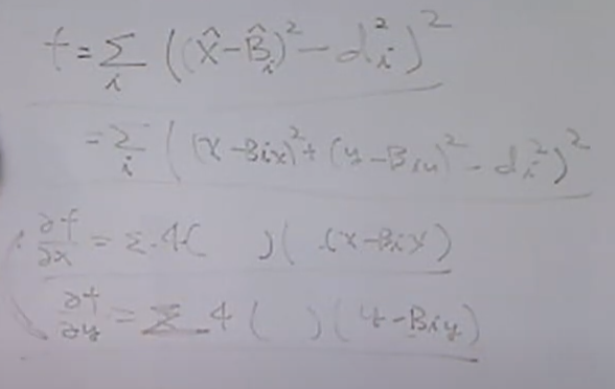 f = Σ_i ((x̂ - B̂_i)² - d_i²)²
= Σ_i ((x - Bix)² + (y - Biy)² - d_i²)²
∂f/∂x = Σ 4( )( (x - Bix)
∂f/∂y = Σ 4 ( ) (y - Biy)